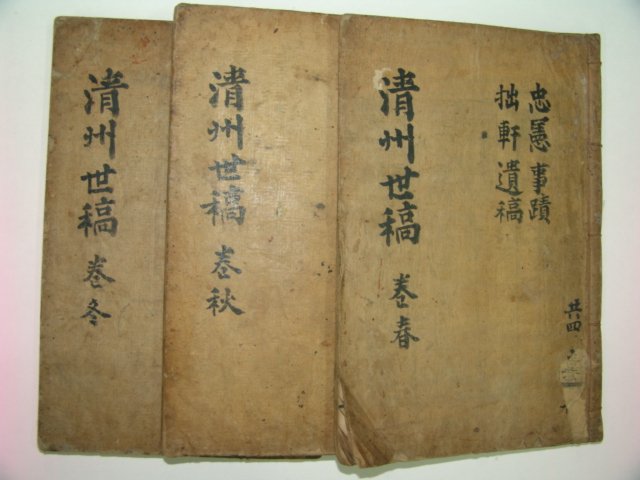 忠憲事蹟
拙軒遺稿
共四
清州世稿 卷春
清州世稿 卷秋
清州世稿 卷冬